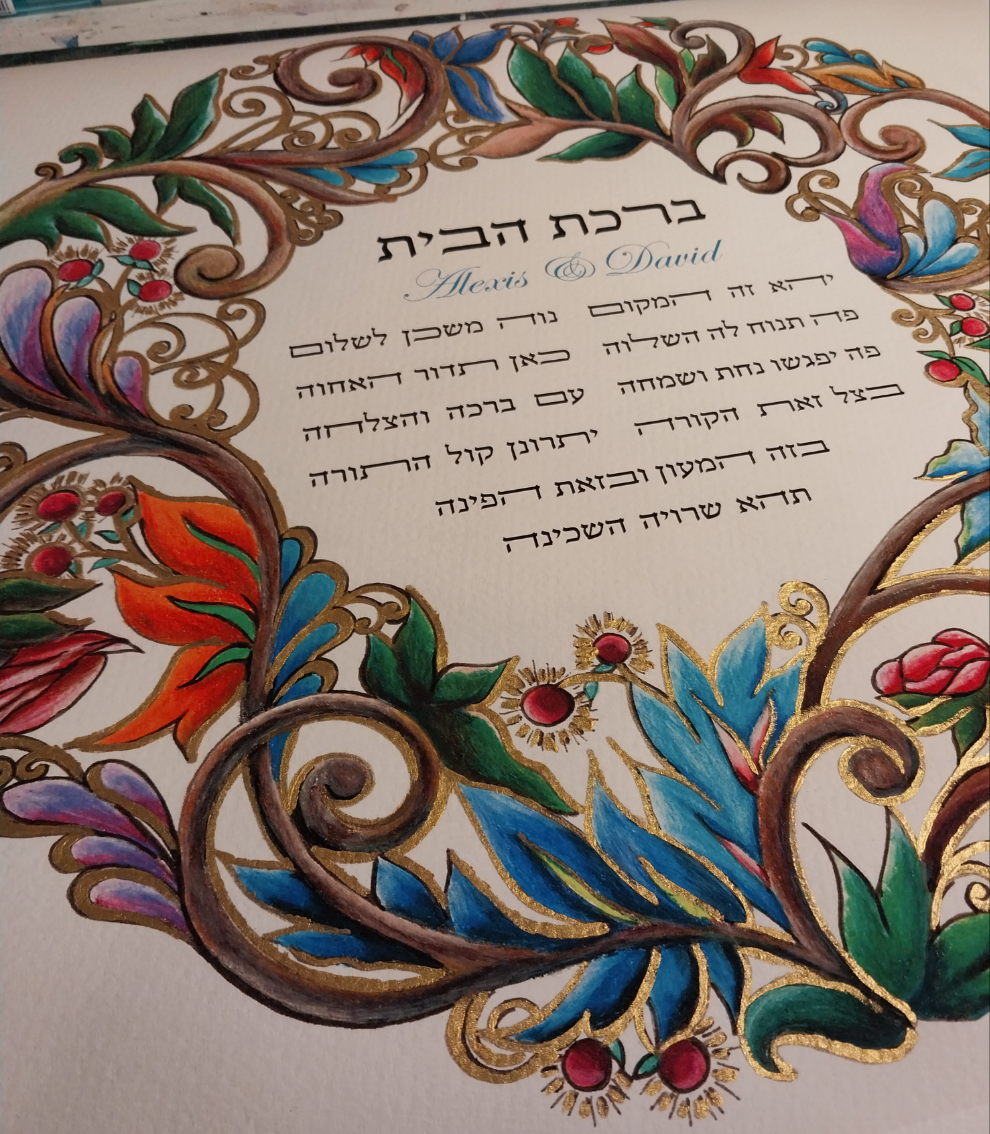 ברכת הבית
Alexis & David
יהא זה המקום נוה משכן לשלום
פה תנוח לה השלוה כאן תדור האחוה
פה יפגשו נחת ושמחה עם ברכה והצלחה
בצל זאת הקורה יתרונן קול התורה
בזה המעון ובזאת הפינה
תהא שרויה השכינה